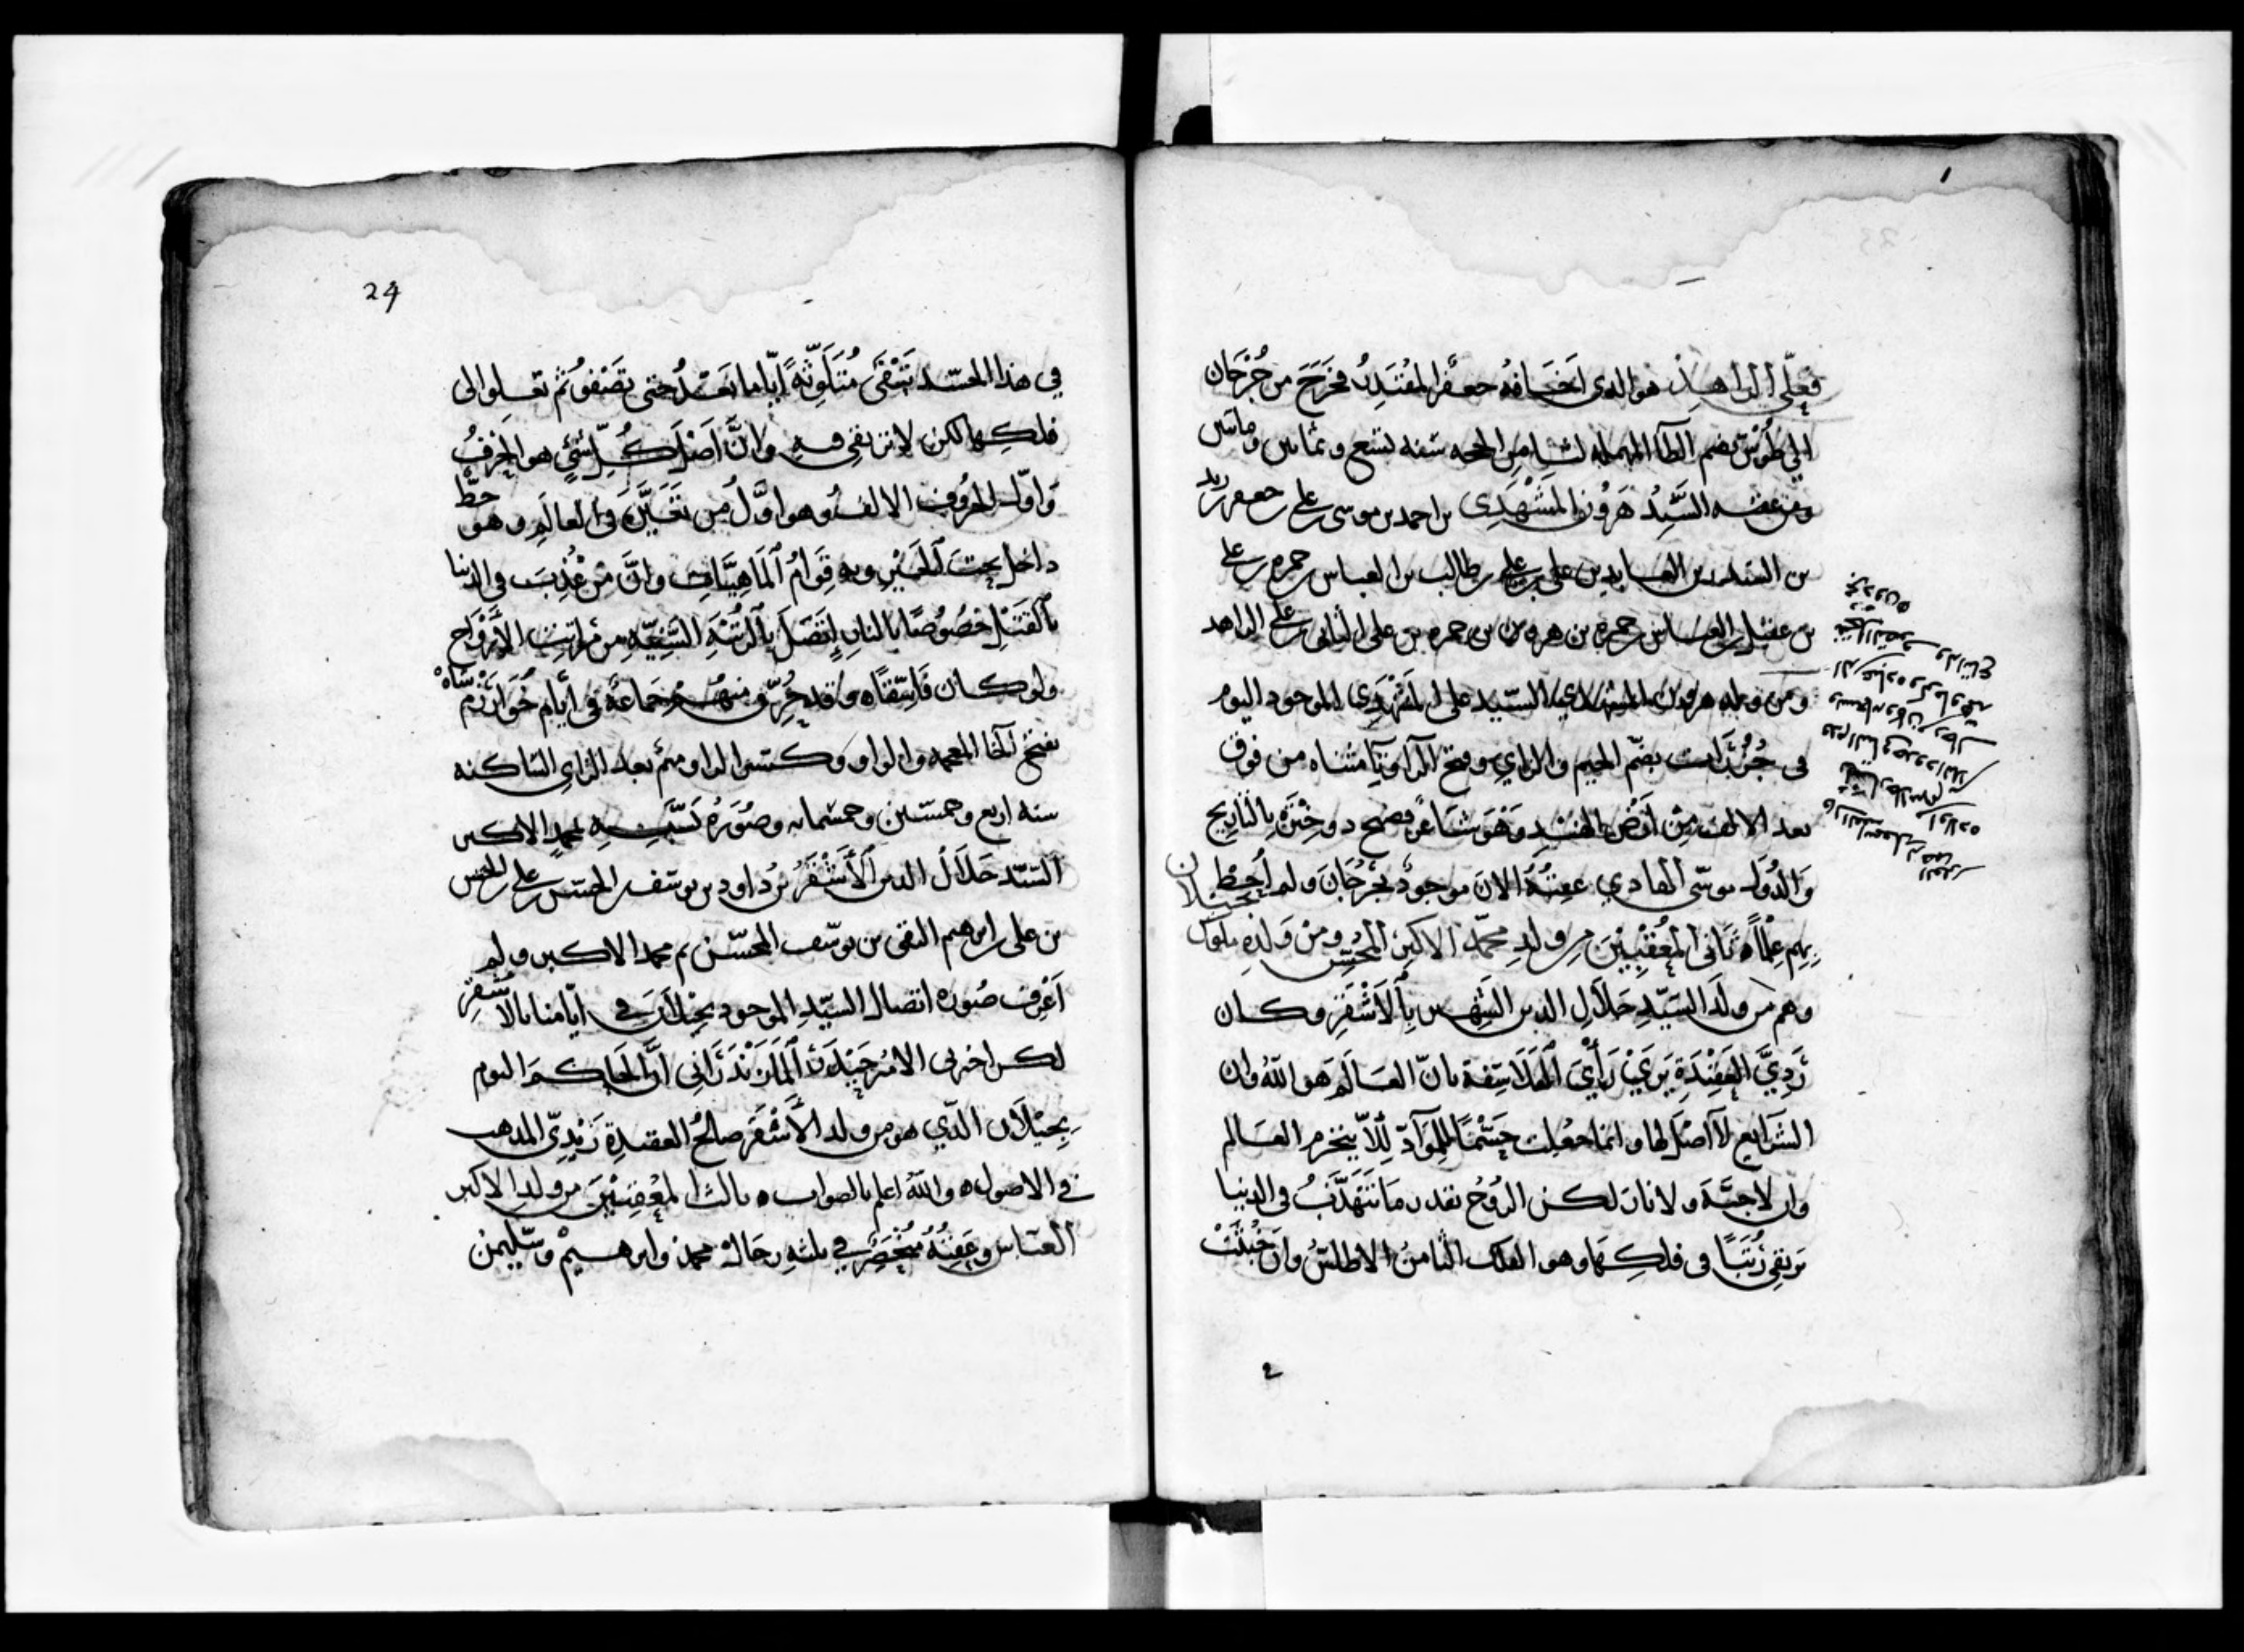 فعلى الزاهد هو الذي اخافه جعفر المقتدر فخرج من جرجان
الى طوس بضم الطآ المهمله لثامن الحجه سنه تسع وثمانين ومايتين
ومن عقبه السيد هرون المشهدي بن احمد بن موسى بن علي بن جعفر بن زيد
بن السيد بن العابدين علي بن علي بن طالب بن العباس بن حمزه بن علي
بن عقيل بن العباس بن حمزه بن هرون بن حمزه بن علي الثاني بن علي الزاهد
ومن ولد هرون المشهدي السيد علي المشهدي الموجود اليوم
في جزرات بضم الجيم والزاي وفتح الرآ وتآ مثناه من فوق
بعد الالف من ارض الهند وهو شاعر فصيح ذو خبرة بالتاريخ
والدول موسى الهادي عقبه الان موجود بجرجان ولم احط
بهم علما ثاني المعقبين من ولد محمد الاكبر المحسن ومن ولده ملوك بجيلان
وهم من ولد السيد جلال الدين الشهير بالاشقر وكان
ردي العقيدة يرى راي الفلاسفة بان العالم هو الله وان
الشرايع لا اصل لها وانما جعلت حسما للمواد لئلا ينخرم العالم
وان لا جنة ولا نار لكن الروح بقدر ما تتهذب في الدنيا
يرتقى رتبا في فلكها وهو الفلك الثامن الاطلس وان خبثت
24
في هذا الجسد تبقى متلوثة اياما بعد حتى تصفو ثم تعلو الى
فلكها لكن لا ترتقي فيه وان اصل كل شئ هو الحرف
واول الحروف الالف وهو اول من تحيز في العالم وهو خط
داخل تحت الحيز وبه قوام الماهيات وان من عذب في الدنيا
بالقتل خصوصا بالنار اتصل بالرتبه السنيه من مراتب الارواح
ولو كان فاسقا وقد حرق منهم جماعة في ايام خوارزم شاه
بفتح الخا المعجمه والواو وكسر الراو ميم بعد الزاي الساكنه
سنه اربع وخمسين وخمسمايه وصورة نسبه محمد الاكبر
السيد جلال الدين الاشقر بن داود بن يوسف بن الحسن بن علي بن الحسن
بن علي بن ابرهيم التقى بن يوسف المحسن بن محمد الاكبر ولم
اعرف صوره اتصال السيد الموجود بجيلان في ايامنا بالاشقر
لكن اخبرني الامير حيدر المازندراني ان الحاكم اليوم
بجيلان الذي هو من ولد الاشقر صالح العقيدة زيدي المذهب
في الاصول والله اعلم بالصواب ثالث المعقبين من ولد الاكبر
العباس وعقبه منحصر في ثلثه رجال محمد وابرهيم وسليمن